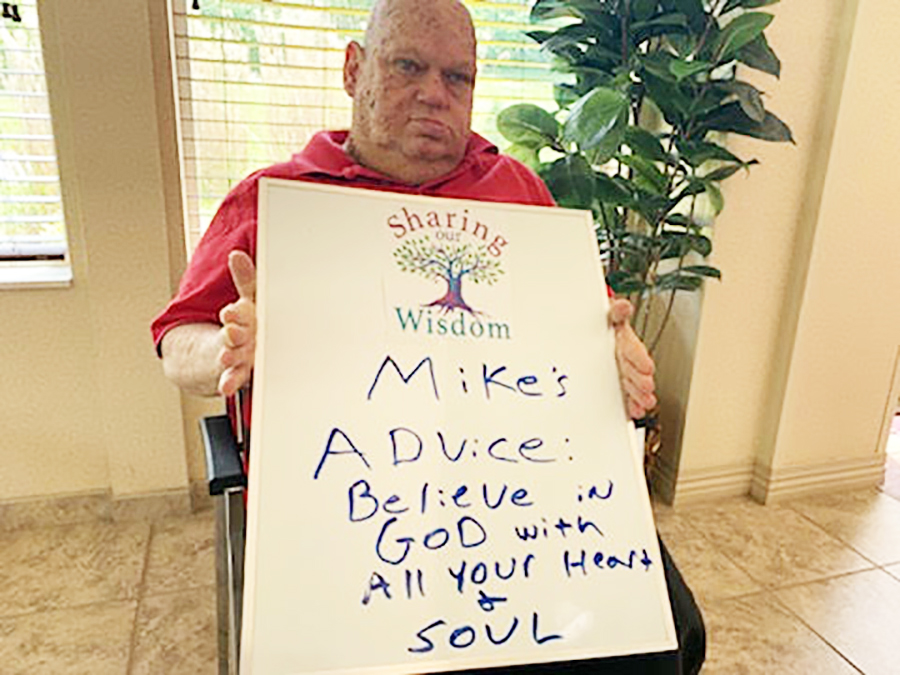 Sharing
our
Wisdom
Mike's
ADvice:
Believe iN
GOD with
All YOUr Heart
&
SOUL